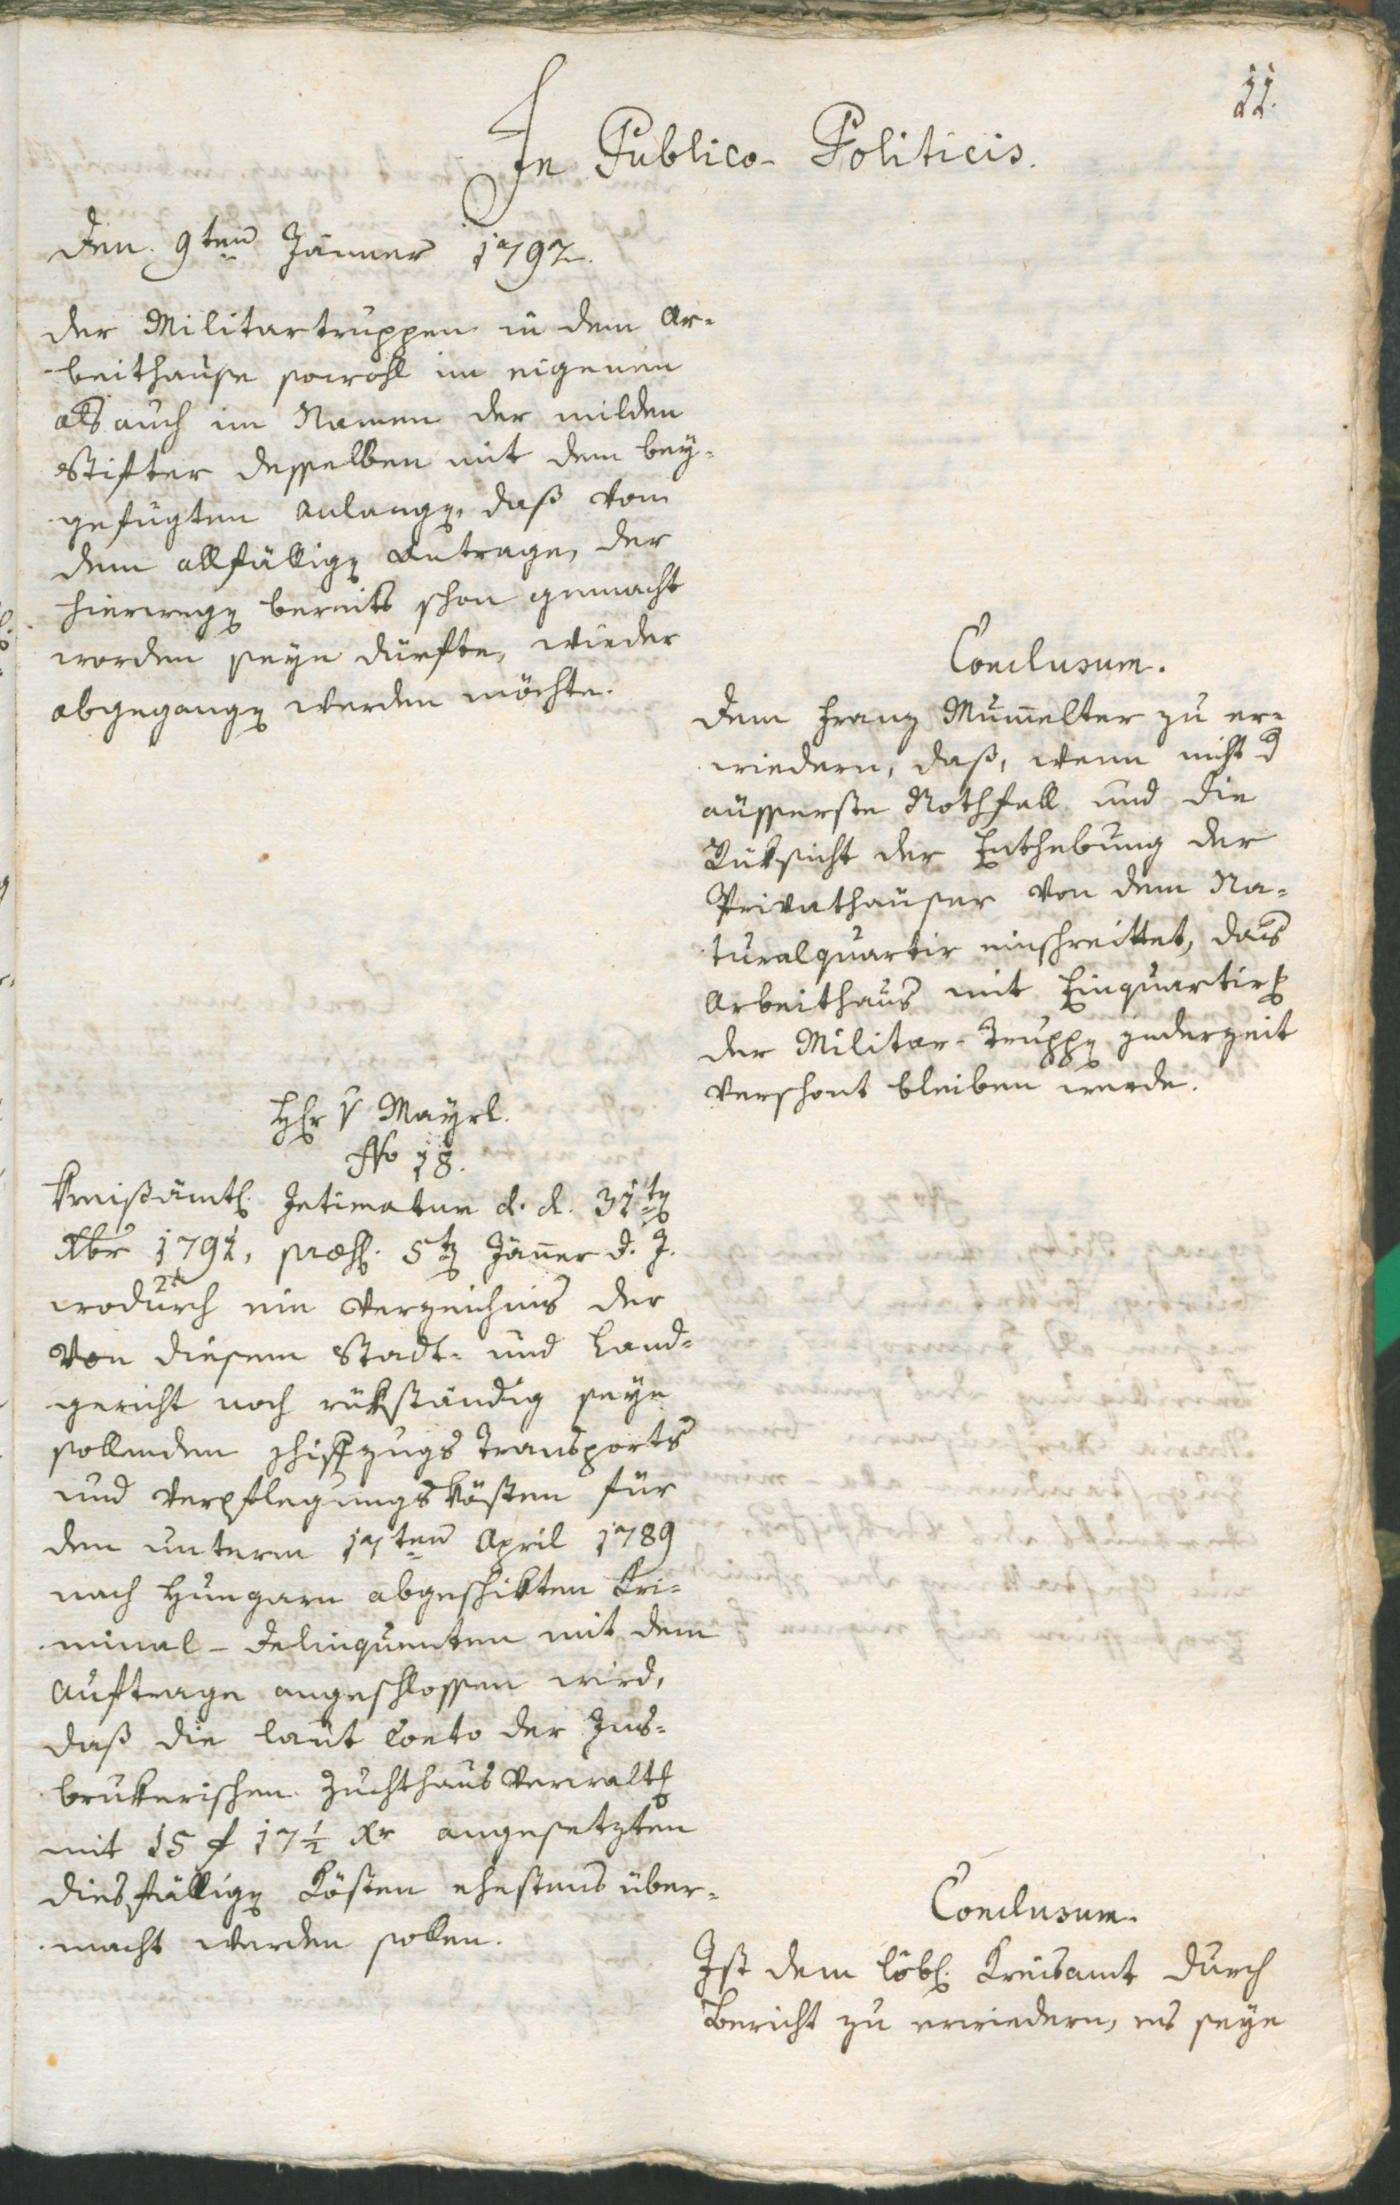 11.
In Publico-Politicis.
Den 9ten Jänner 1792.
der Militartruppen in dem Ar-
beithause sowohl im eigenen
als auch im Namen der milden
Stifter desselben mit dem bey-
gefügten Anlangen, daß vom
dem allfällign Antrage, der
hierwegn bereits schon gemacht
worden seyn dürfte, wieder
abgegangn werden möchte.
Conclusum.
Dem Franz Mumelter zu er-
wiedern, daß, wenn nicht d
äusserste Nothfall und die
Rüksicht der Enthebung der
Privathäuser von dem Na-
turalquartir einschreittet, das
Arbeithaus mit Einquartirg
der Militar-Truppn jederzeit
verschont bleiben werde.
Hr v Mayrl.
No 18.
Kreißämtl. Intimatum d. d. 31tn
Xbr 1791, præs. 5tn Jäner d. J.
wodurch ein Verzeichnis der
von diesem Stadt- und Land-
gericht noch rükständig seyn
sollenden Schiffzugs Transports
und Verpflegungskösten für
den unterm 17ten April 1789
nach Hungarn abgeschikten Cri-
minal-Delinquenten mit dem
Auftrage angeschlossen wird,
daß die laut Conto der Ins-
brukerischen Zuchthaus Verwaltg
mit 15 f 17½ Xr angesetzten
diesfällign Kösten ehestens über-
macht werden sollen.
Conclusum.
Ist dem löbl. Kreisamt durch
Bericht zu erwiedern, es seye